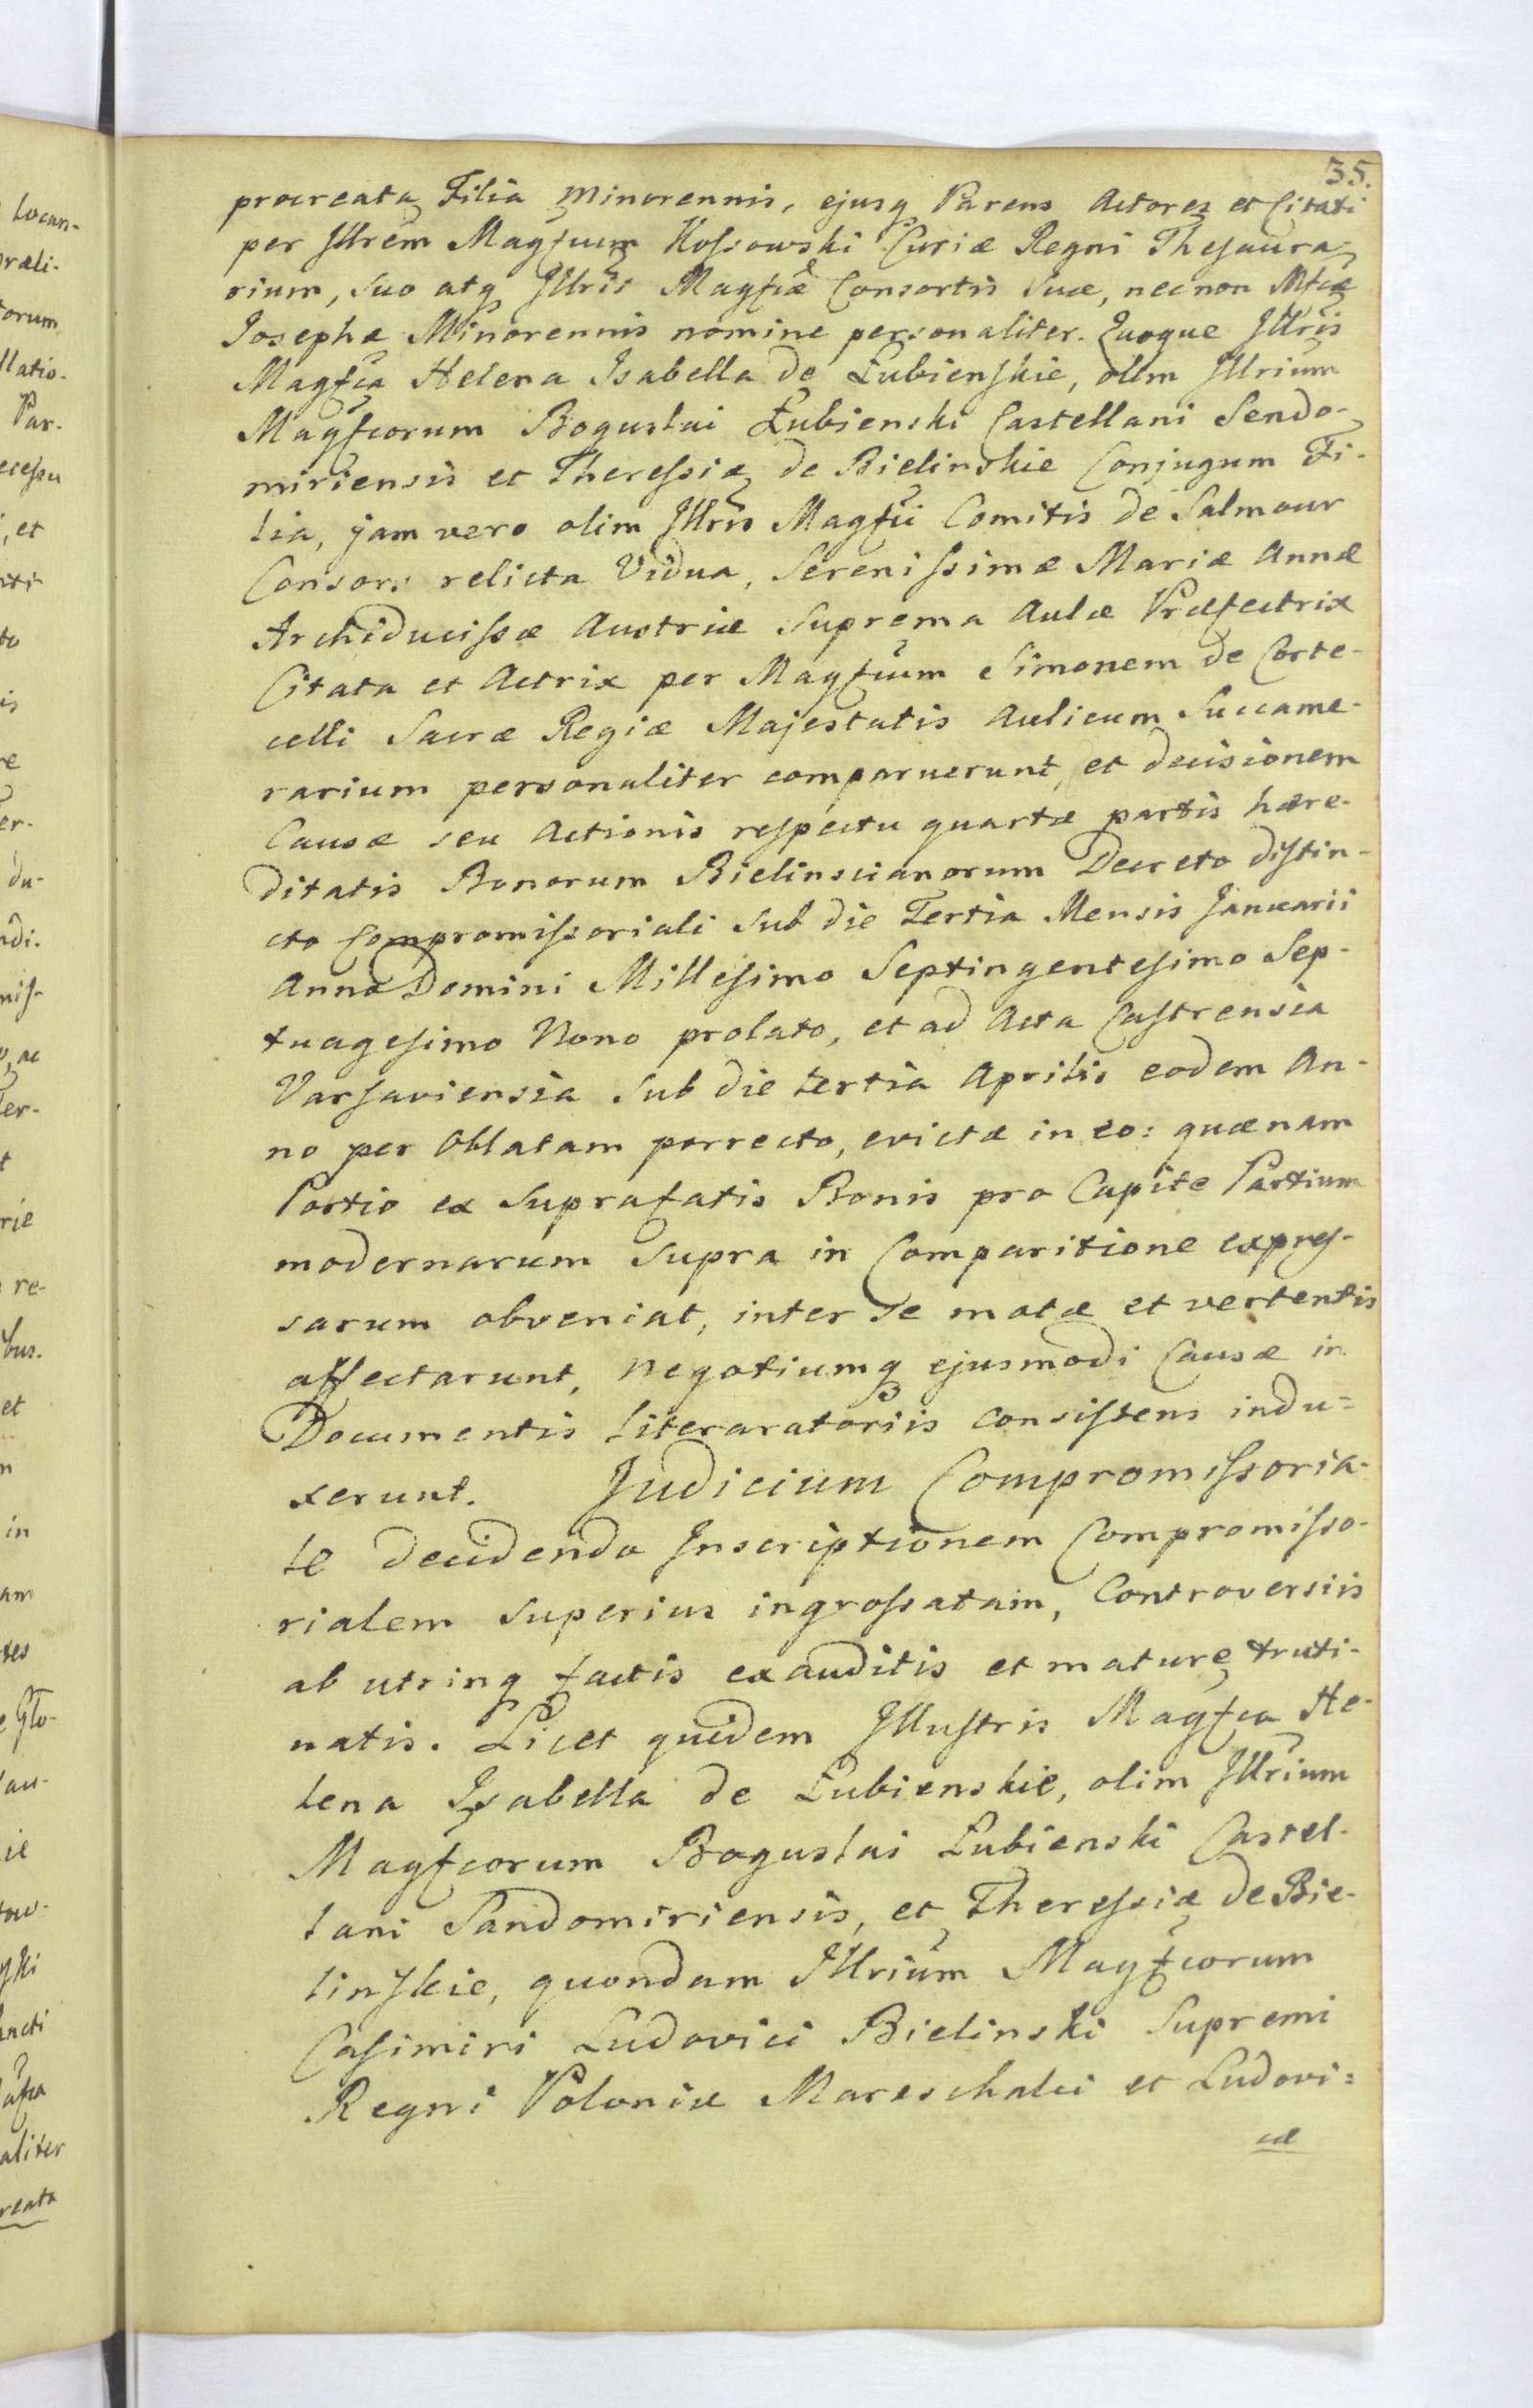 35.
procreata Filia Minorennis, ejusq Parens Actores et Citati
per Illrem Magfcum Kossowski Curiæ Regni Thesaura-
rium, suo atq Illris Magfcæ Consortis suæ, necnon Mfcæ
Josephæ Minorennis nomine personaliter. Quoque Illris
Magfca Helena Isabella de Łubienskie, olim Illrium
Magfcorum Boguslai Łubienski Castellani Sendo-
miriensis et Theressiæ de Bielinskie Conjugum Fi-
lia, jam vero olim Illris Magfci Comitis de Salmour
Consors relicta Vidua, Serenissimæ Mariæ Annæ
Archiducissæ Austriæ Suprema Aulæ Præfectrix
Citata et Actrix per Magfcum Simonem de Corte-
celli Sacræ Regiæ Majestatis Aulicum Succame-
rarium personaliter comparuerunt, et decisionem
Causæ seu Actionis respectu quartæ partis hære-
ditatis Bonorum Bielinscianorum Decreto distin-
cto Compromissoriali sub die Tertia Mensis Januarii
Anno Domini Millesimo Septingentesimo Sep-
tuagesimo Nono prolato, et ad Acta Castrensia
Varsaviensia sub die tertia Aprilis eodem An-
no per Oblatam porrecto, evictæ in eo: quænam
Portio ex suprafatis Bonis pro Capite Partium
modernarum supra in Comparitione expres-
sarum obveniat, inter se motæ et vertentis
affectarunt, negotiumq ejusmodi Causæ in
Documentis literaratoriis consistens indu=
xerunt. Judicium Compromissoria-
le decidendo Inscriptionem Compromisso-
rialem superius ingrossatam, Controversiis
ab utrinq factis exauditis et mature truti-
natis. Licet quidem Illustris Magfca He-
lena Isabella de Łubienskie, olim Illrium
Magfcorum Boguslai Łubienski Castel-
lani Sandomiriensis, et Theressiæ de Bie-
linskie, quondam Illrium Magfcorum
Casimiri Ludovici Bielinski Supremi
Regni Poloniæ Mareschalci et Ludovi=
cæ